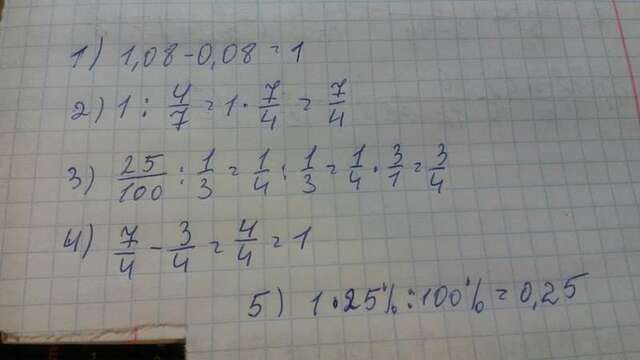 1) 1,08 - 0,08 = 1
2) 1 : 4/7 = 1 · 7/4 = 7/4
3) 25/100 : 1/3 = 1/4 : 1/3 = 1/4 · 3/1 = 3/4
4) 7/4 - 3/4 = 4/4 = 1
5) 1 · 25% : 100% = 0,25